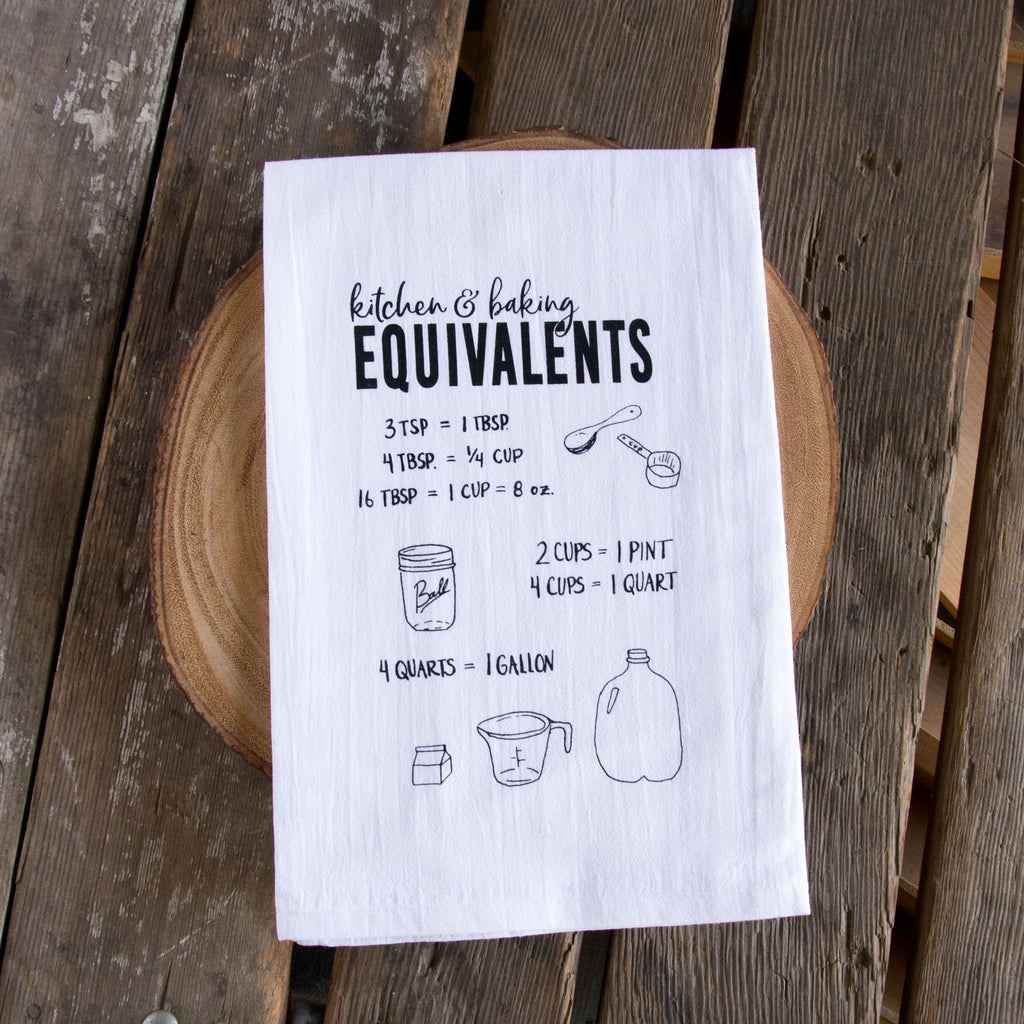 kitchen & baking
EQUIVALENTS
3 TSP = 1 TBSP.
4 TBSP. = ¼ CUP
CUP
16 TBSP = 1 CUP = 8 oz.
2 CUPS = 1 PINT
4 CUPS = 1 QUART
Ball
4 QUARTS = 1 GALLON